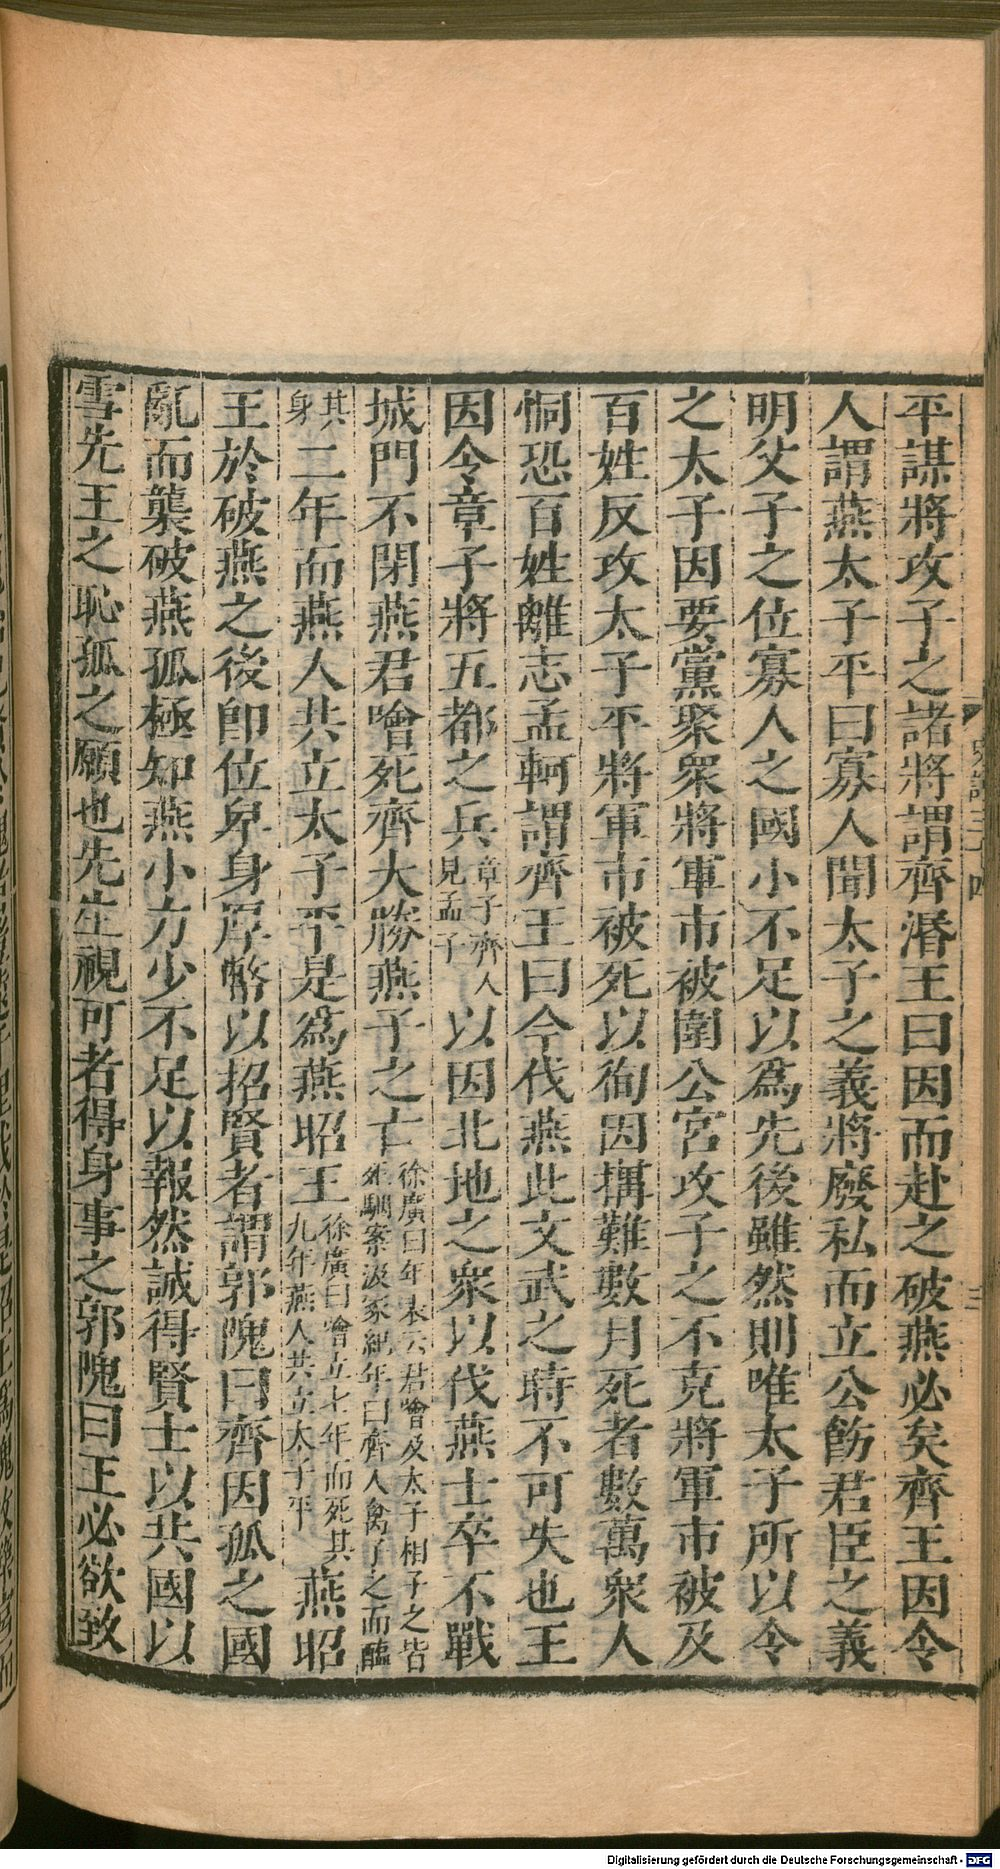 平謀將攻子之諸將謂齊湣王曰因而赴之破燕必矣齊王因令
人謂燕太子平曰寡人聞太子之義將廢私而立公飭君臣之義
明父子之位寡人之國小不足以爲先後雖然則唯太子所以令
之太子因要黨聚衆將軍市被圍公宮攻子之不克將軍市被及
百姓反攻太子平將軍市被死以徇因搆難數月死者數萬衆人
恫恐百姓離志孟軻謂齊王曰今伐燕此文武之時不可失也王
因令章子將五都之兵章子齊人見孟子以因北地之衆以伐燕士卒不戰
城門不閉燕君噲死齊大勝燕子之亡徐廣曰年表云君噲及太子相子之皆死駰案汲冢紀年曰齊人禽子之而醢
其身二年而燕人共立太子平是爲燕昭王徐廣曰噲立七年而死其九年燕人共立太子平燕昭
王於破燕之後卽位卑身厚幣以招賢者謂郭隗曰齊因孤之國
亂而襲破燕孤極知燕小力少不足以報然誠得賢士以共國以
雪先王之恥孤之願也先生視可者得身事之郭隗曰王必欲致
Digitalisierung gefördert durch die Deutsche Forschungsgemeinschaft - DFG